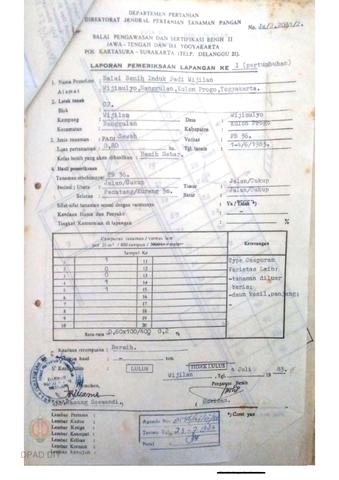 DEPARTEMEN PERTANIAN
DIREKTORAT JENDRAL PERTANIAN TANAMAN PANGAN
No.
BALAI PENGAWASAN DAN SERTIFIKASI BENIH II
JAWA - TENGAH DAN D.I. YOGYAKARTA
POS KARTASURA - SURAKARTA (TELP. DELANGGU 21).
LAPORAN PEMERIKSAAN LAPANGAN KE I (pertumbuhan)
1. Nama Pemohon : Balai Benih Induk Padi Wijilan
Alamat : Wijimulyo, Nanggulan, Kulon Progo, Yogyakarta.
2. Letak tanah
Blok : 02.
Kampung : Wijilan Desa : Wijimulyo
Kecamatan : Nanggulan Kabupaten : Kulon Progo
3. Jenis tanaman : PADI Sawah PB 36.
Luas pertanaman : 0,80 Ha. Tgl. tanam : 1-4/6/1983.
Kelas benih yang akan dihasilkan : Benih Sebar.
4. Hasil pemeriksaan
Tanaman sebelumnya : PB 36.
Isolasi : Utara : Jalan/Cukup Timur : Jalan/Cukup
Selatan : Pematang/Kurang 3m. Barat : Jalan/Cukup
Sifat-sifat tanaman sesuai dengan varietasnya : Ya / Tidak *)
Keadaan Hama dan Penyakit :
Tingkat Kemurnian di lapangan : %
Campuran tanaman / varitas lain
Keterangan
Sampel Ke
1 11
2 12
3 0 13
4 1 14
5 1 15
6 16
7 17
8 18
9 19
10 20
Type Campuran
Varietas Lain:
-tanaman diluar
baris;
-daun kecil, panjang;
Rata-rata 0,60x100/400 0,2 %
Keadaan rerumputan : Bersih.
LULUS TIDAK LULUS
Wijilan 4 Juli 19 83.
Pengawas Benih
*) Coret yang
Agenda No.
Tanggal
Paraf
Lembar Pertama :
Lembar Kedua :
Lembar Ketiga :
Lembar Keempat :
Lembar Kelima :
Lembar Keenam :
DPAD DIY